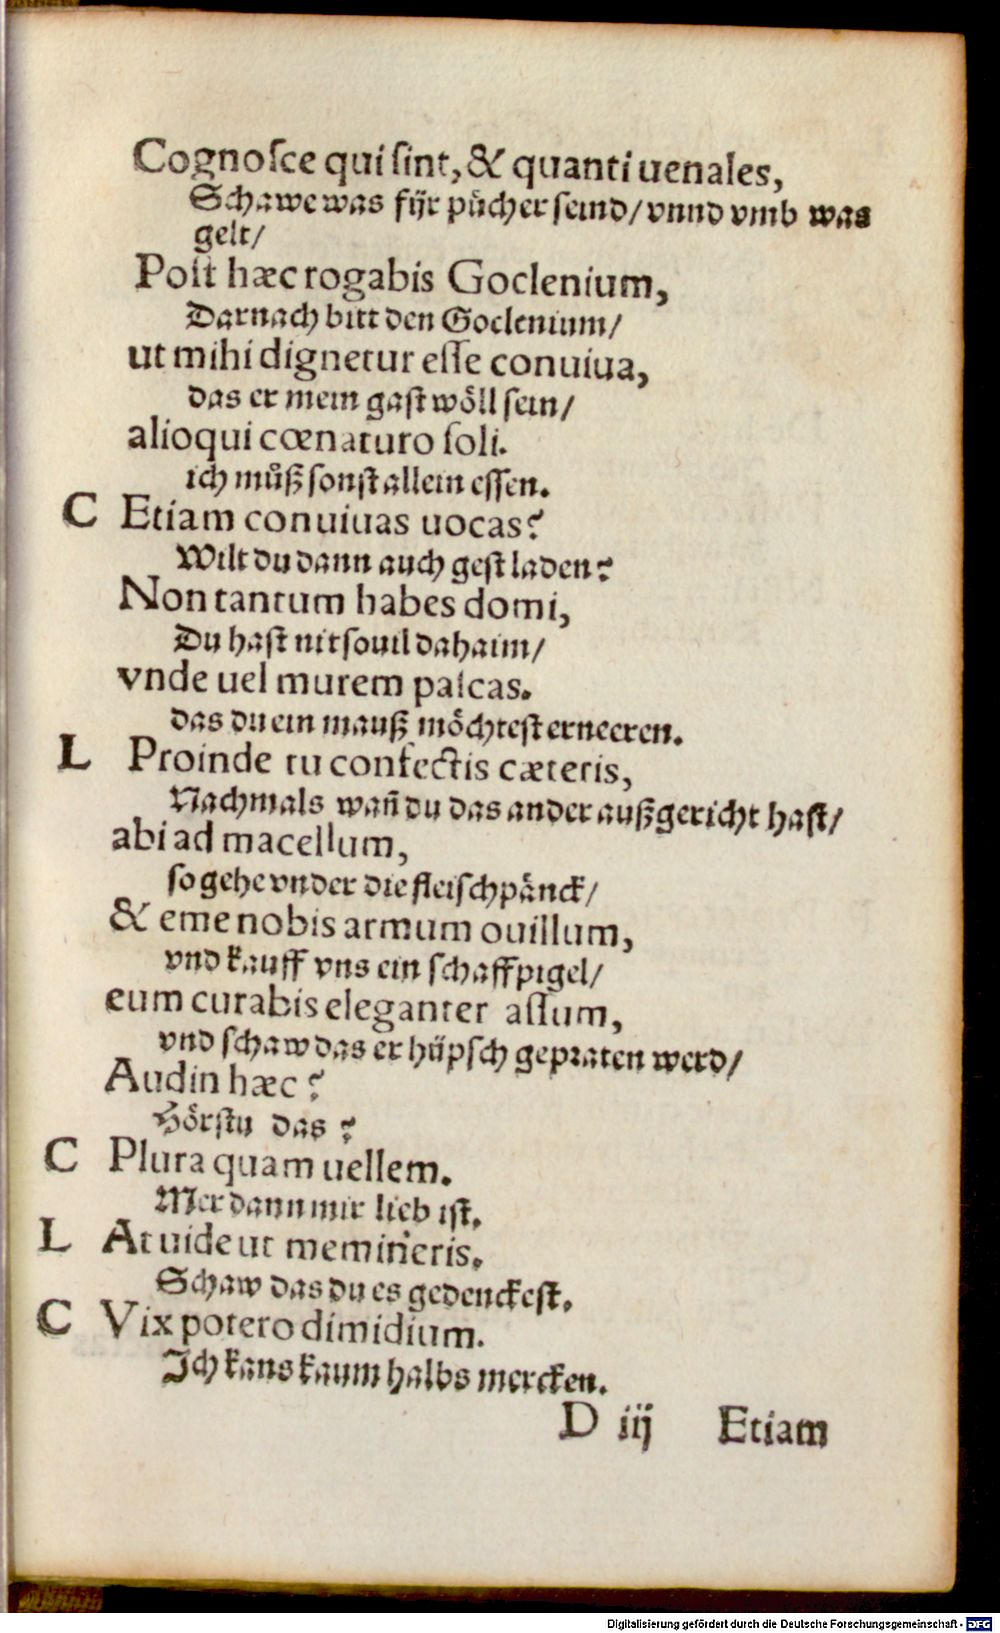 Cognoſce qui ſint, & quanti uenales,
Schawe was fỹr pücher ſeind/ vnnd vmb was
gelt/
Poſt hæc rogabis Goclenium,
Darnach bitt den Goclenium/
ut mihi dignetur eſſe conuiua,
das er mein gaſt wöll ſein/
alioqui cœnaturo ſoli.
ich můß ſonſt allein eſſen.
C Etiam conuiuas uocas?
Wilt du dann auch geſt laden?
Non tantum habes domi,
Du haſt nit ſouil dahaim/
vnde uel murem paſcas.
das du ein mauß möchteſt erneeren.
L Proinde tu confectis cæteris,
Nachmals wañ du das ander außgericht haſt/
abi ad macellum,
ſo gehe vnder die fleiſchpänck/
& eme nobis armum ouillum,
vnd kauff vns ein ſchaffpigel/
eum curabis eleganter aſſum,
vnd ſchaw das er hüpſch gepraten werd/
Audin hæc?
Hörſtu das?
C Plura quam uellem.
Mer dann mir lieb iſt.
L At uide ut memineris.
Schaw das du es gedenckeſt.
C Vix potero dimidium.
Ich kans kaum halbs mercken.
D iij Etiam
Digitalisierung gefördert durch die Deutsche Forschungsgemeinschaft - DFG